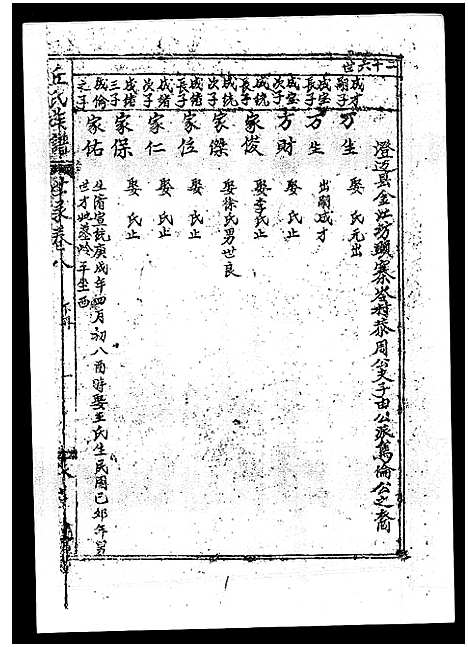 二十六世
澄迈县金江坊頭寨岺村恭周公支子由公派篤倫公之裔
成才嗣子
万生
娶 氏元出
成宝長子
万生
出嗣成才
成宝次子
方財
娶 氏止
成統長子
家俊
娶李氏止
成統次子
家傑
娶徐氏男世良
成绪長子
家位
娶 氏止
成绪次子
家仁
娶 氏止
成绪三子
家保
娶 氏止
成倫之子
家佑
生清宣統庚戌年四月初八酉時娶王氏生民國己卯年男
世才地墓岭 平坐酉
丘氏族譜
卷八
1